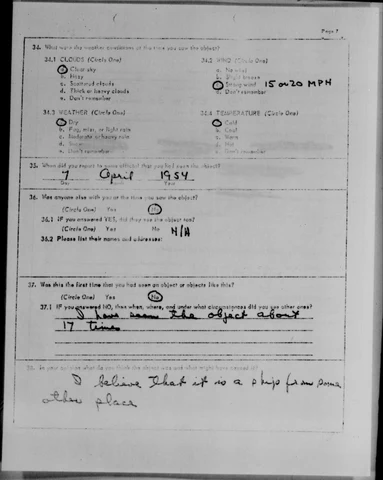 Page 7
34. What were the weather conditions at the time you saw the object?
34.1 CLOUDS (Circle One) 34.2 WIND (Circle One)
a. Clear sky a. No wind
b. Hazy b. Slight breeze
c. Scattered clouds c. Strong wind 15 or 20 MPH
d. Thick or heavy clouds d. Don't remember
e. Don't remember
34.3 WEATHER (Circle One) 34.4 TEMPERATURE (Circle One)
a. Dry a. Cold
b. Fog, mist, or light rain b. Cool
c. Moderate or heavy rain c. Warm
d. Snow d. Hot
e. Don't remember e. Don't remember
35. When did you report to some official that you had seen the object?
7 April 1954
Day Month Year
36. Was anyone else with you at the time you saw the object?
(Circle One) Yes No
36.1 IF you answered YES, did they see the object too?
(Circle One) Yes No N/A
36.2 Please list their names and addresses:
37. Was this the first time that you had seen an object or objects like this?
(Circle One) Yes No
37.1 IF you answered NO, then when, where, and under what circumstances did you see other ones?
I have seen the object about
17 times
38. In your opinion what do you think the object was and what might have caused it?
I believe that it is a ship from some
other place